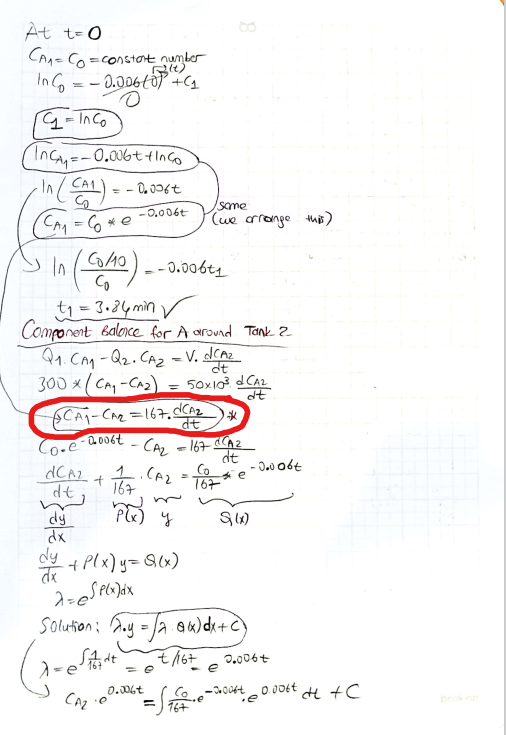 At t=0
CA1 = C0 = constant number
ln C0 = -0.006(0) + C1
0
C1 = ln C0
ln CA1 = -0.006t + ln C0
ln (CA1/C0) = -0.006t
same
CA1 = C0 * e^-0.006t (we arrange this)
ln ((C0/10)/C0) = -0.006t1
t1 = 3.84 min ✓
Component Balance for A around Tank 2
Q1. CA1 - Q2. CA2 = V. dCA2/dt
300 * (CA1 - CA2) = 50x10³. dCA2/dt
CA1 - CA2 = 167. dCA2/dt *
C0. e^-0.006t - CA2 = 167 dCA2/dt
dCA2/dt + 1/167 . CA2 = C0/167 * e^-0.006t
dy/dx P(x) y Q(x)
dy/dx + P(x) y = Q(x)
λ = e^∫P(x)dx
Solution: λ.y = ∫λ. Q(x)dx + C
λ = e^∫1/167 dt = e^t/167 = e^0.006t
CA2 . e^0.006t = ∫ C0/167 . e^-0.006t . e^0.006t dt + C